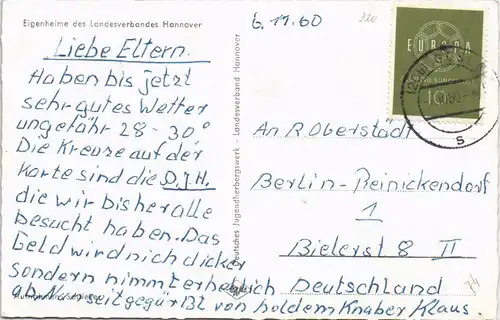 Eigenheime des Landesverbandes Hannover
6.11.60
Liebe Eltern.
Haben bis jetzt
sehr gutes Wetter
ungefähr 28-30°
Die Kreuze auf der
Karte sind die D.J.H.
die wir bisher alle
besucht haben. Das
Geld wird nich dicker
sondern nimmt erheblich
ab. Nun seit gegrüßt von holdem Knaben Klaus.
Deutsches Jugendherbergswerk - Landesverband Hannover
EUROPA
10
An R. Oberstädt
Berlin-Reinickendorf
1
Bielerst 8 II
Deutschland